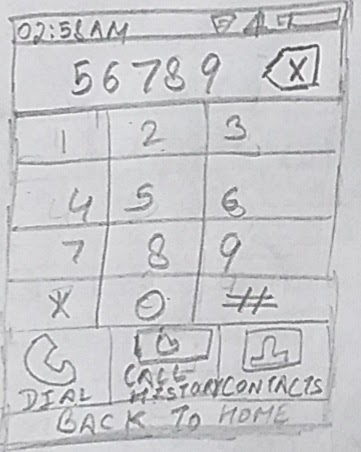 02:58AM
56789 X
1 2 3
4 5 6
7 8 9
* 0 #
DIAL CALL HISTORY CONTACTS
BACK TO HOME